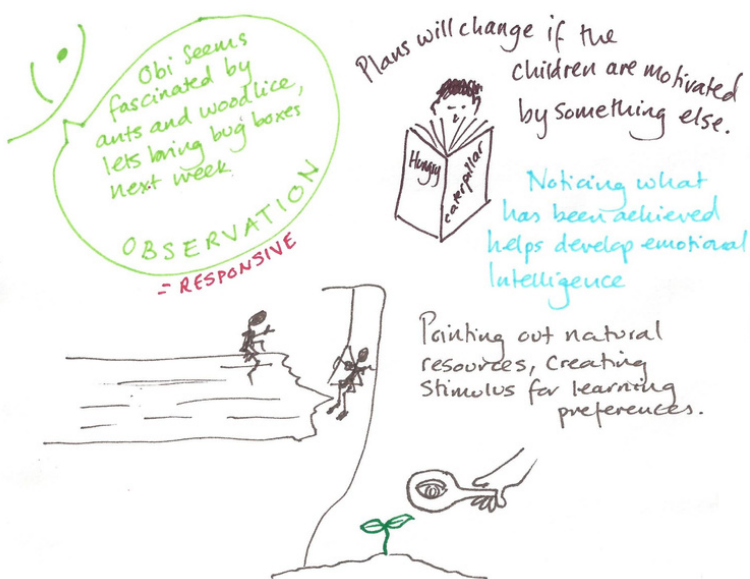 Obi seems
fascinated by
ants and woodlice,
lets bring bug boxes
next week.
OBSERVATION
= RESPONSIVE
Plans will change if the
children are motivated
by something else.
Hungry
caterpillar
Noticing what
has been achieved
helps develop emotional
Intelligence
Pointing out natural
resources, Creating
Stimulus for learning
preferences.